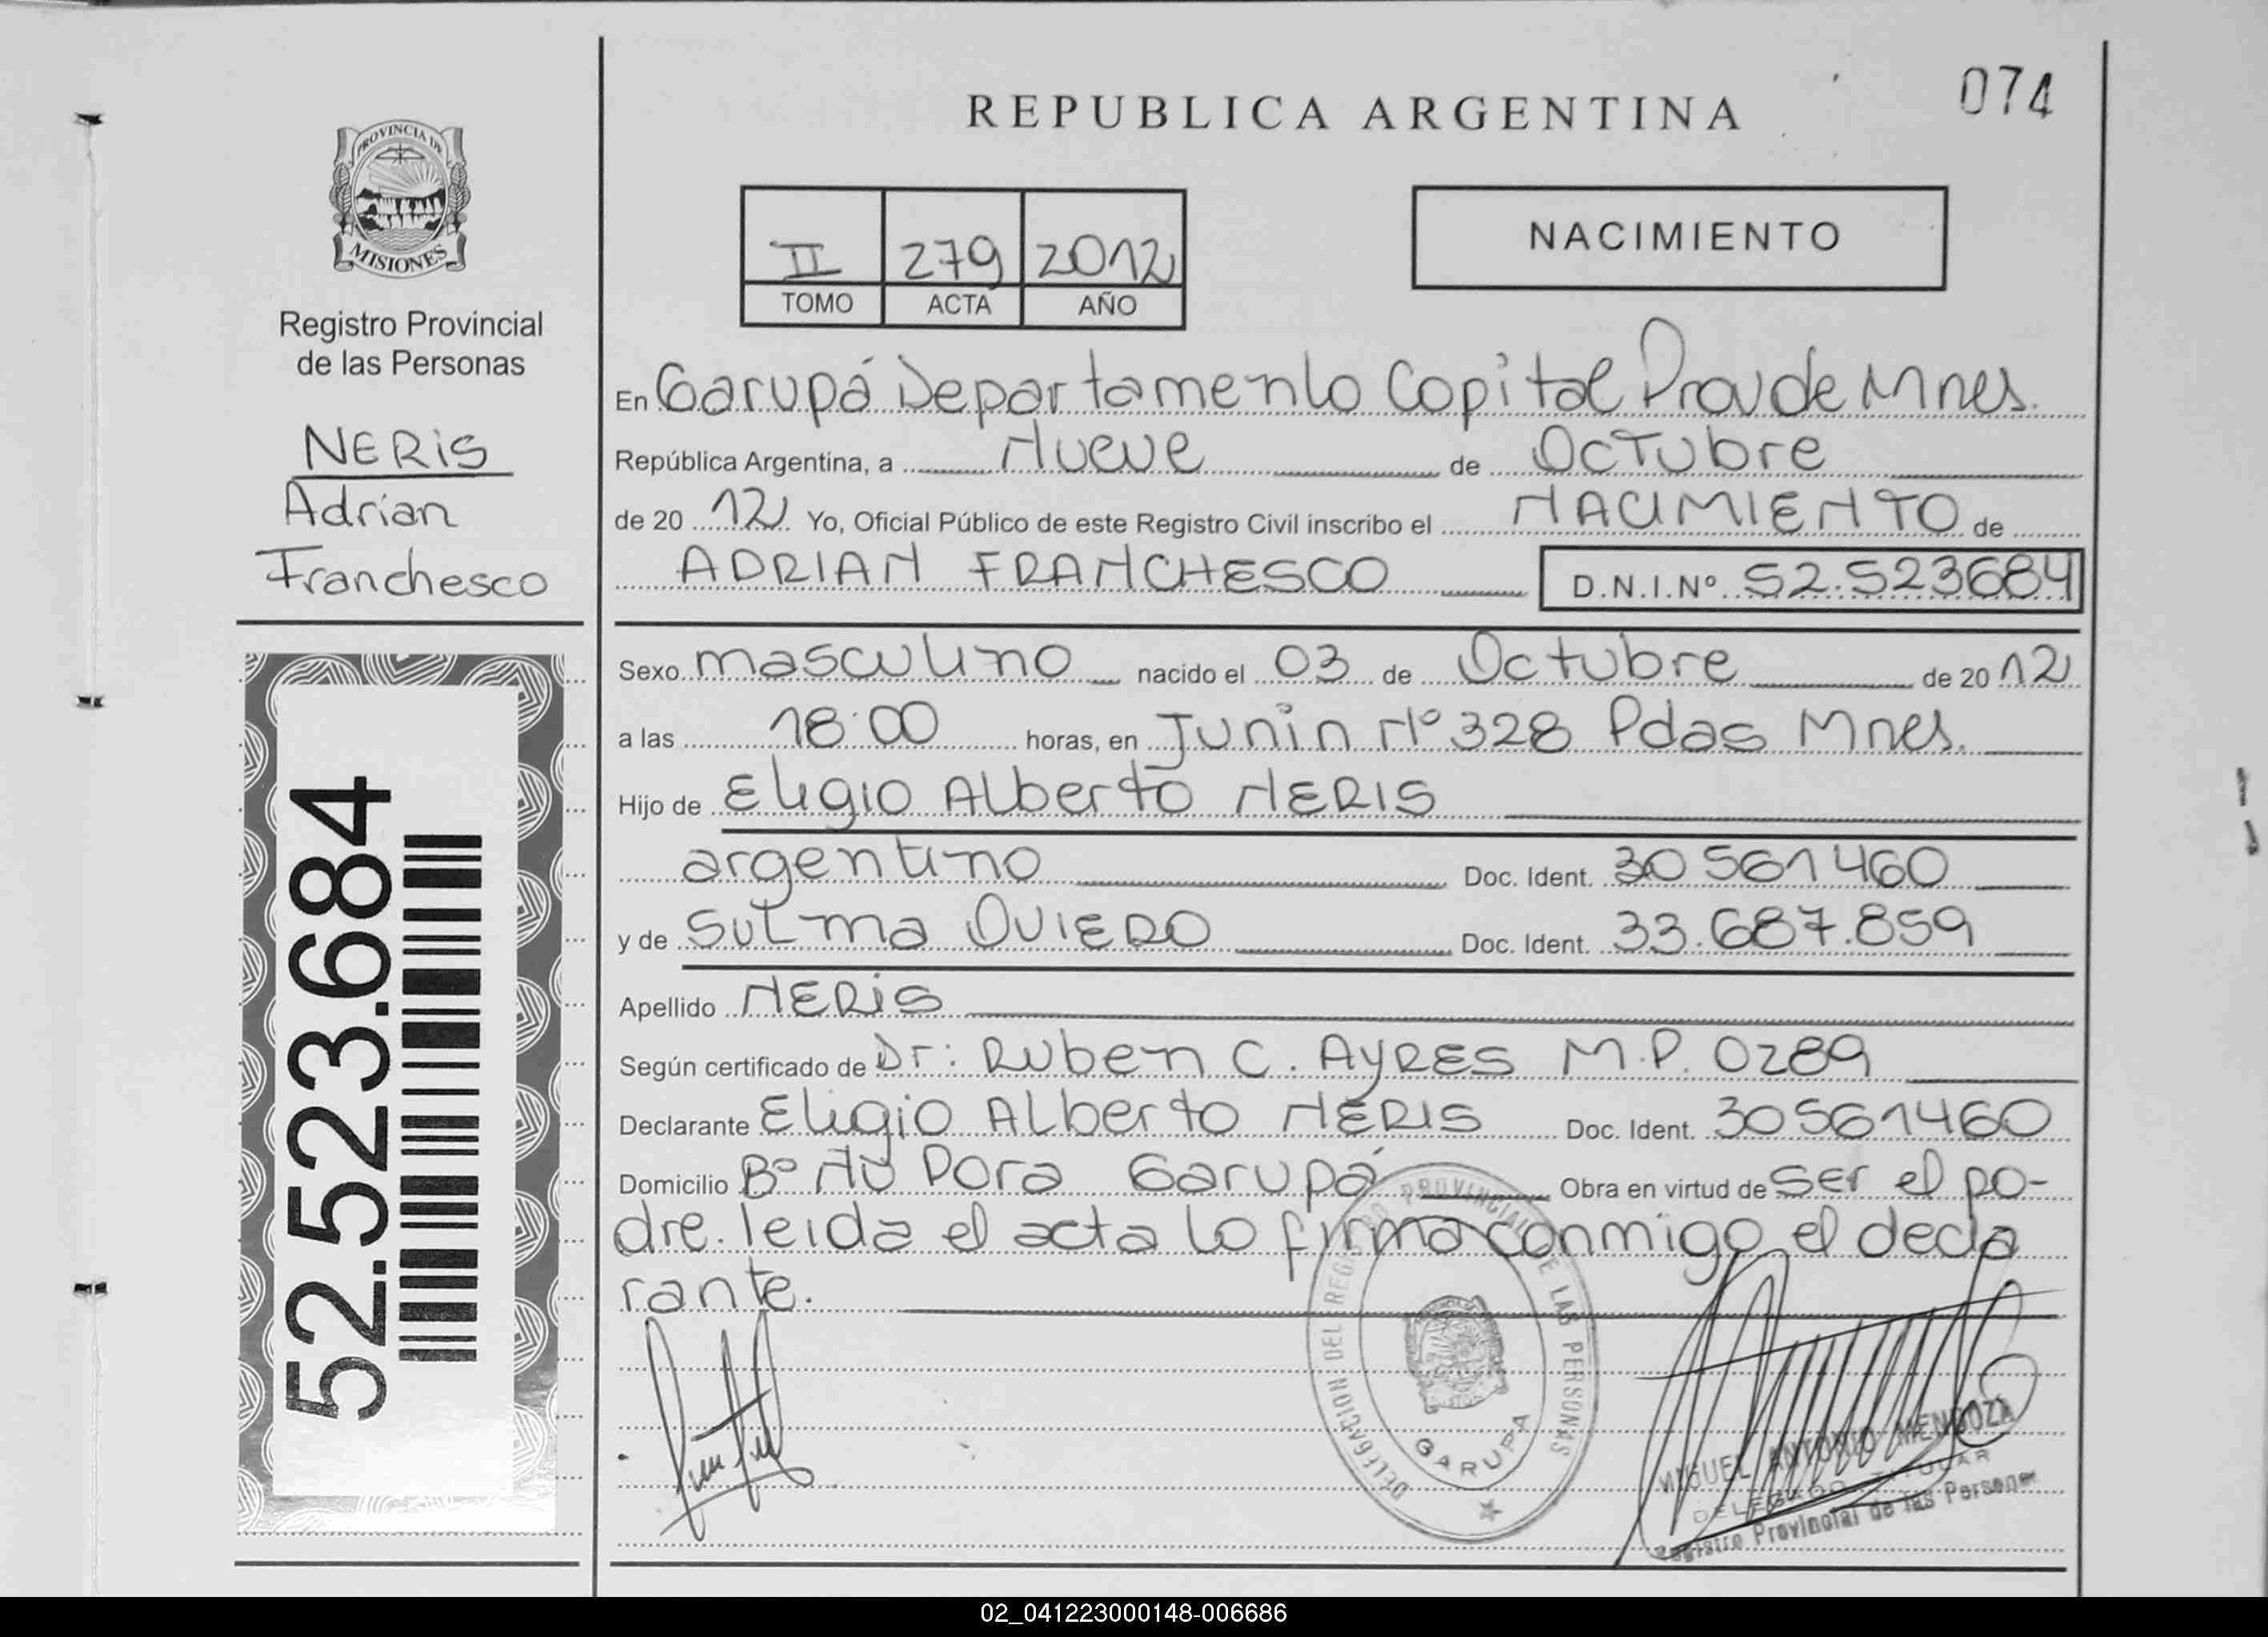 REPUBLICA ARGENTINA
074
PROVINCIA DE
MISIONES
Registro Provincial
de las Personas
NERiS
Adrian
Franchesco
52.523.684
II 279 2012
TOMO ACTA AÑO
NACIMIENTO
En Garupá Departamento Capital Prov de Mnes.
República Argentina, a Nueve de Octubre
de 20 12 Yo, Oficial Público de este Registro Civil inscribo el NACIMIENTO de
ADRIAN FRANCHESCO D.N.I.Nº 52.523684
Sexo masculino nacido el 03 de Octubre de 20 12
a las 18:00 horas, en Junin Nº 328 Pdas Mnes.
Hijo de Eligio Alberto NERIS
argentino Doc. Ident. 30 561 460
y de Sulma OVIEDO Doc. Ident. 33.687.859
Apellido NERiS
Según certificado de Dr: Ruben C. AyRES M.P. 0289
Declarante Eligio Alberto NERIS Doc. Ident. 30561460
Domicilio Bº Ñu Pora Garupá Obra en virtud de ser el pa-
dre. leida el acta lo firma conmigo el decla
rante.
DELEGACION DEL REGISTRO PROVINCIAL DE LAS PERSONAS
GARUPA
MIGUEL ANTONIO MENDOZA
DELEGADO TITULAR
Registro Provincial de las Personas
02_041223000148-006686